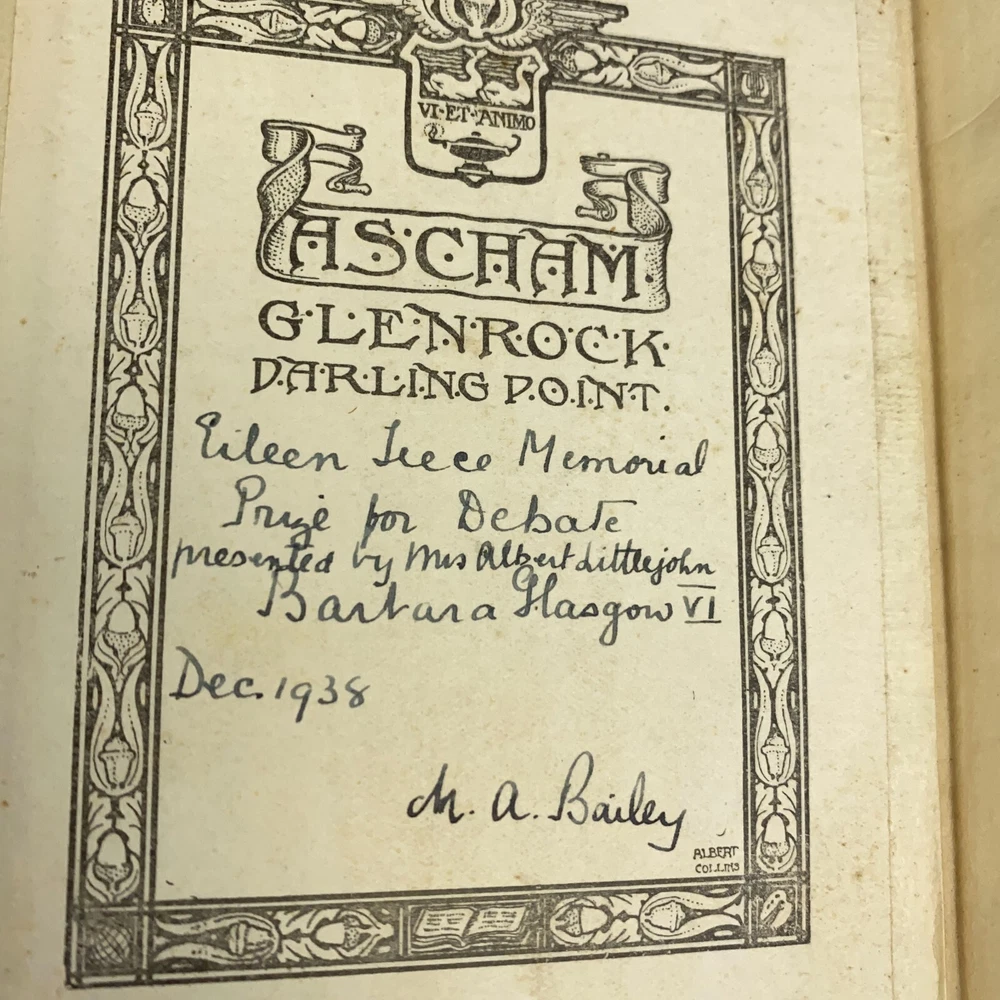 VI·ET·ANIMO
ASCHAM.
GLENROCK.
DARLING POINT.
Eileen Leece Memorial
Prize for Debate
presented by Mrs Albert Littlejohn
Barbara Glasgow VI
Dec. 1938
M. A. Bailey
ALBERT
COLLINS